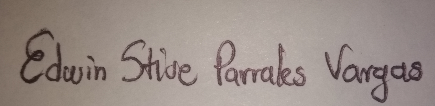 Edwin Stive Parrales Vargas